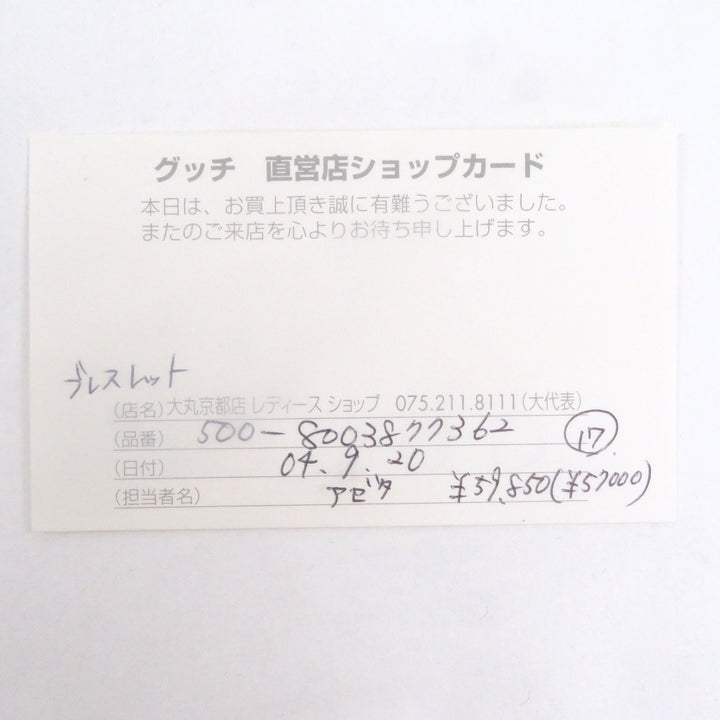 グッチ 直営店ショップカード
本日は、お買上頂き誠に有難うございました。
またのご来店を心よりお待ち申し上げます。
ブレスレット
(店名) 大丸京都店 レディース ショップ 075.211.8111(大代表)
(品番) 500-8003877362 17
(日付) 04.9.20
(担当者名) アゼタ ¥59,850(¥57000)